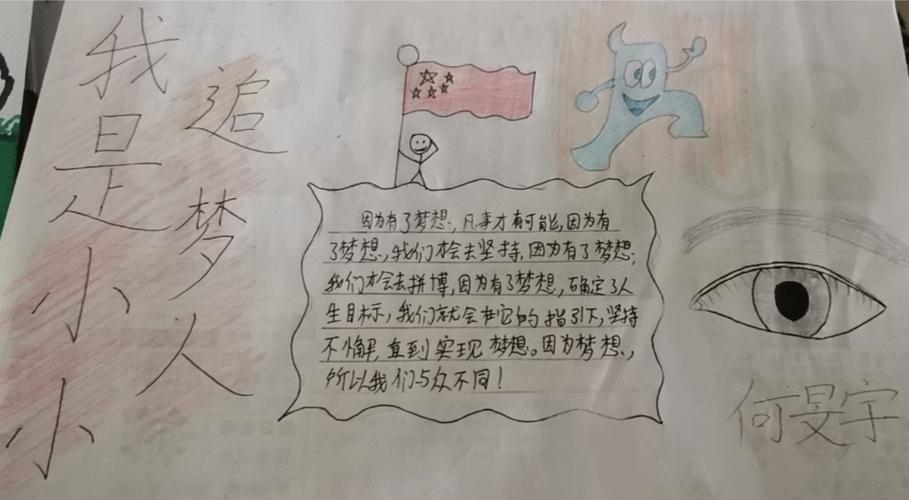 我是小小
追梦人
因为有了梦想，凡事才有可能，因为有
了梦想，我们才会去坚持，因为有了梦想，
我们才会去拼博，因为有了梦想，确定了人
生目标，我们就会在它的指引下，坚持
不懈，直到实现梦想。因为梦想，
所以我们与众不同！
何旻宇